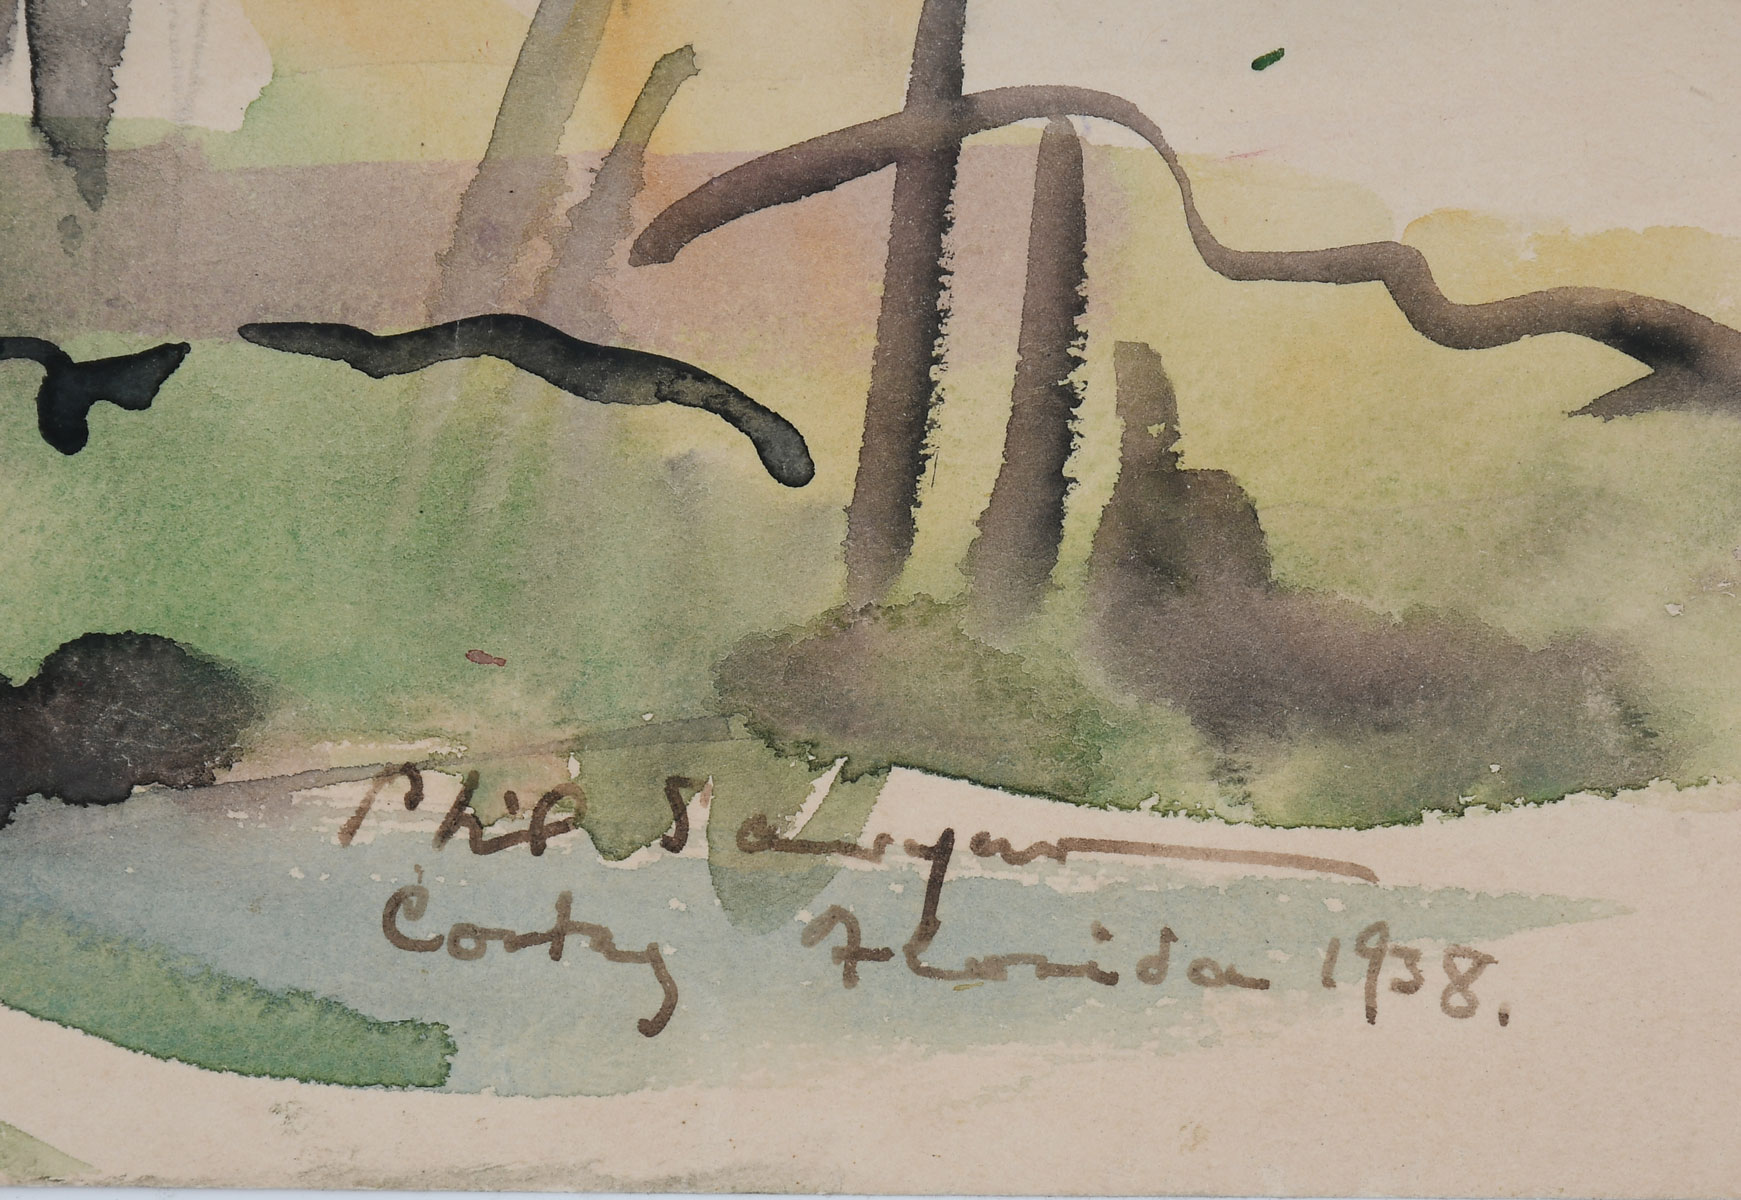 Phil Sawyer
Cortez Florida 1938.